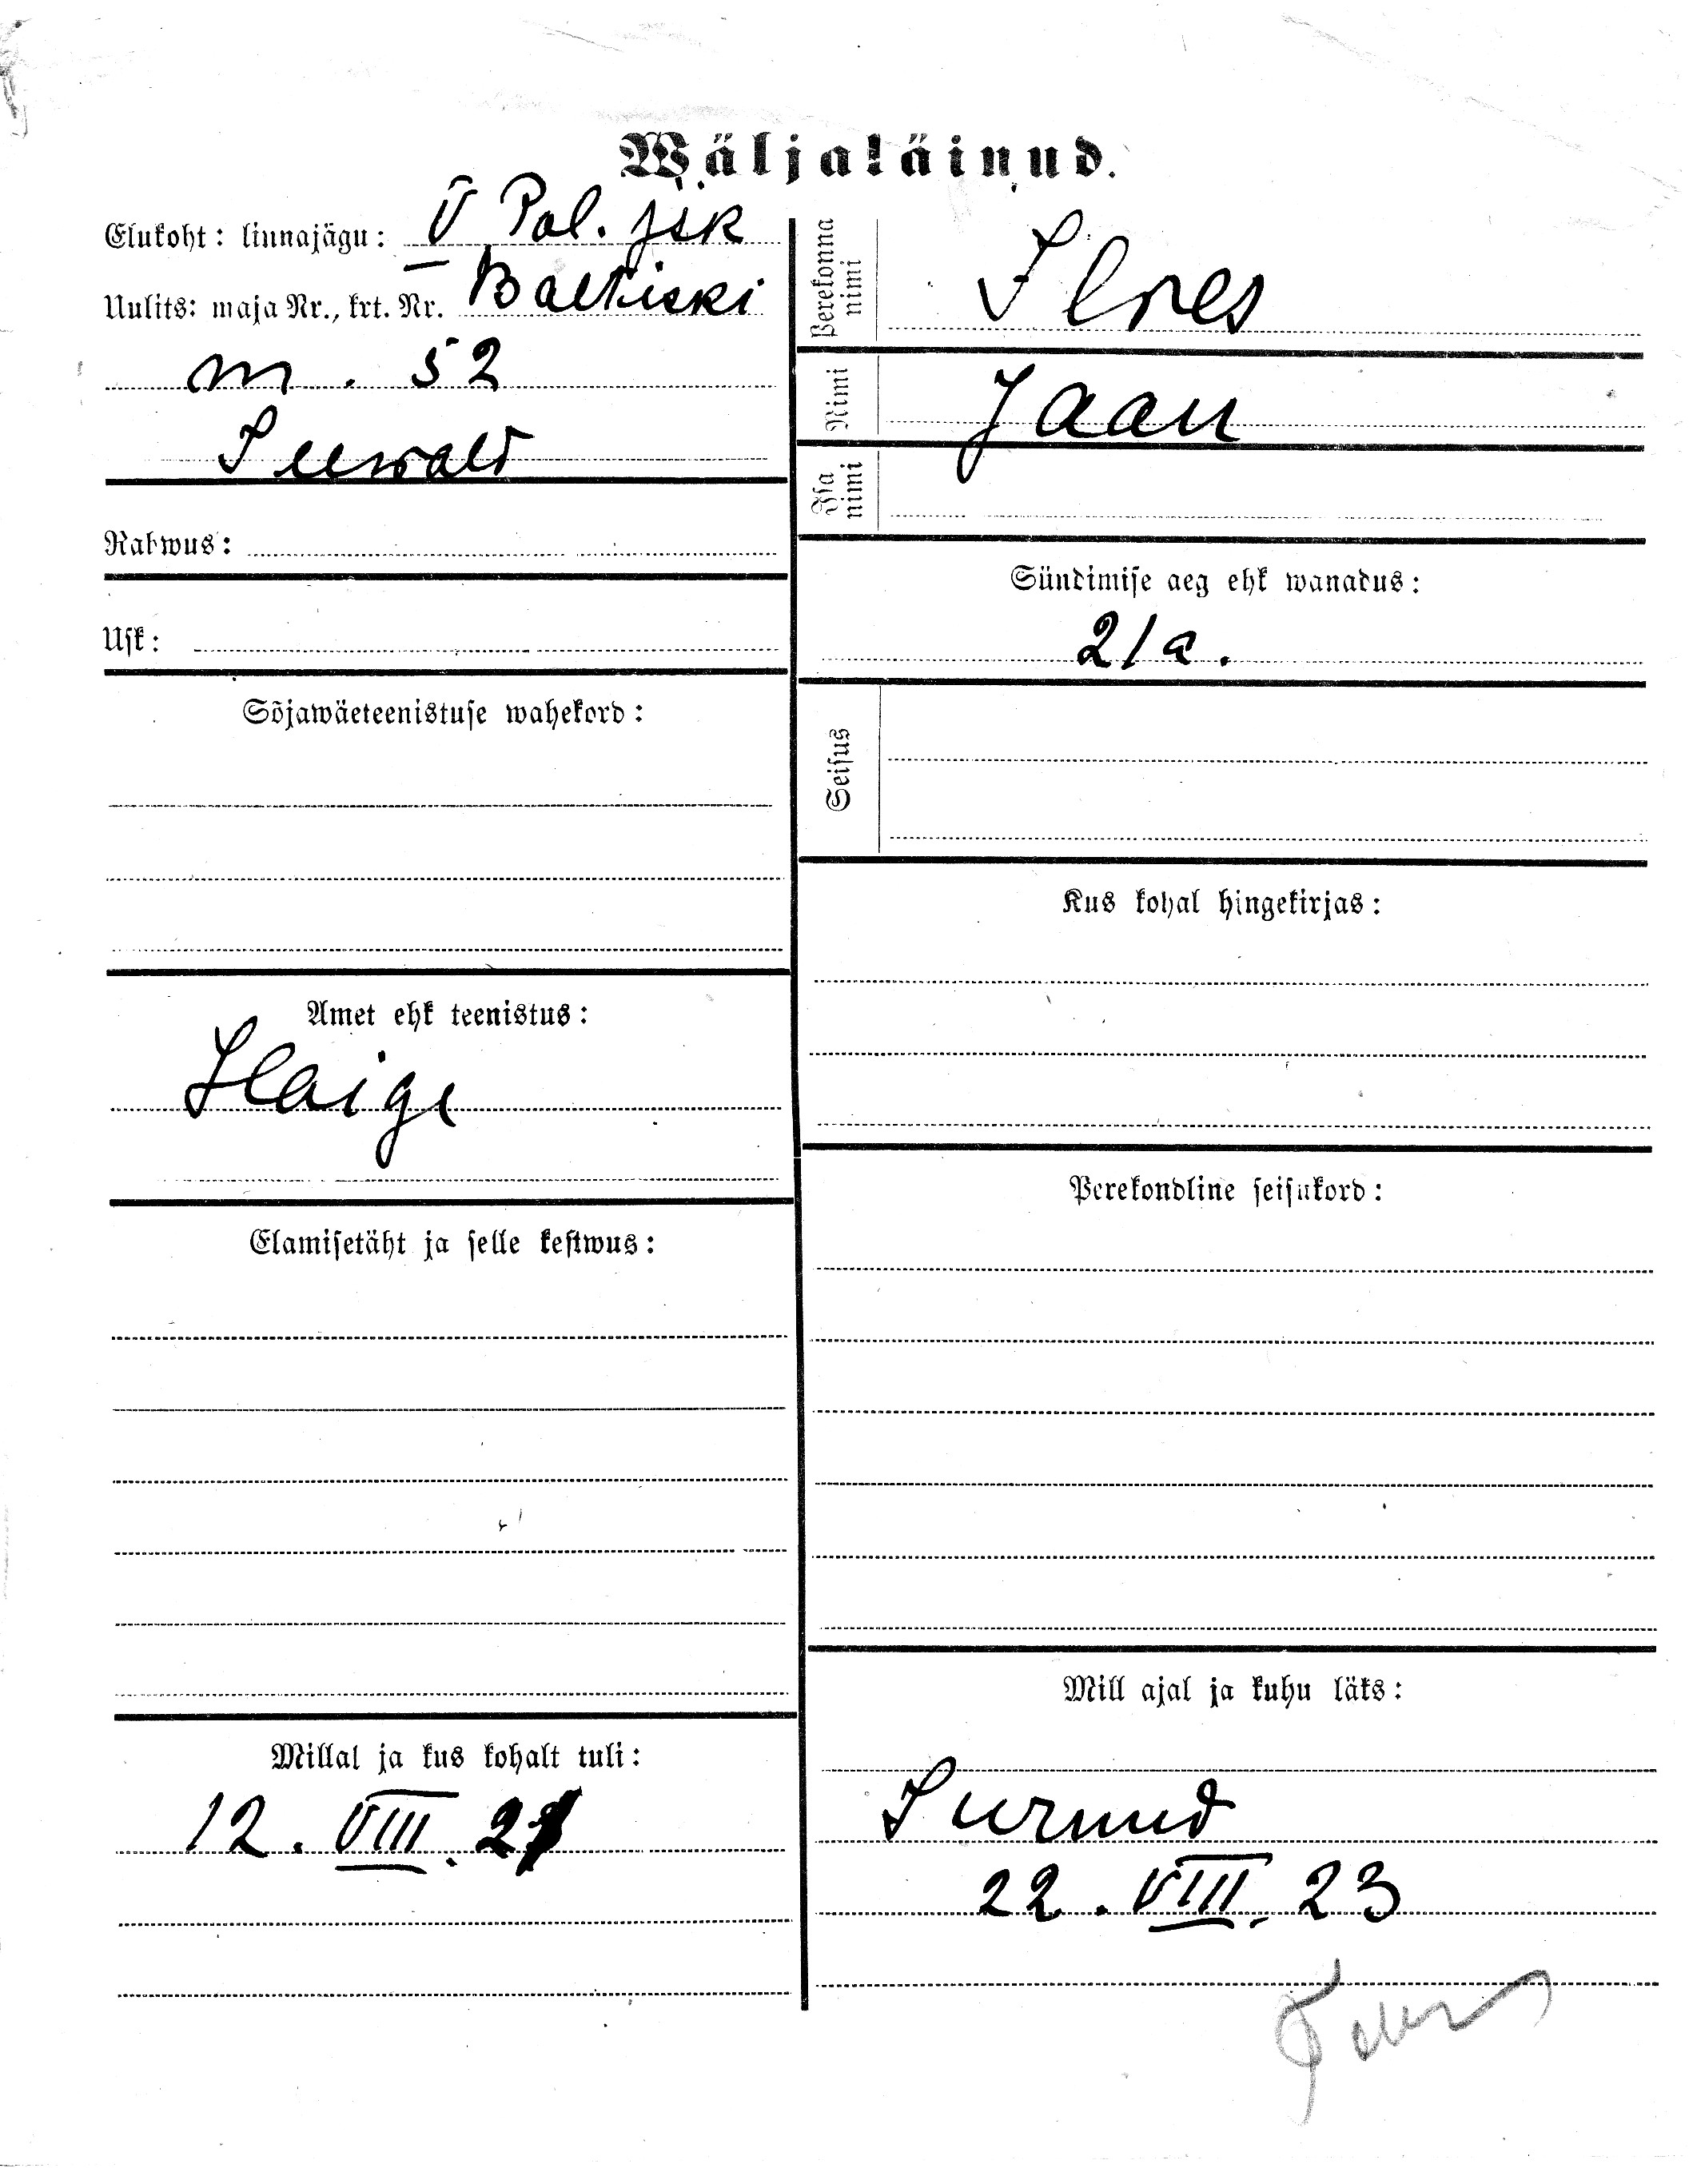 Wäljakäinud.
Elukoht: linnajägu: V Pol. jsk
Uulits: maja Nr., krt. Nr. Baltiski
m. 52
Seewald
Rahwus:
Usk:
Sõjawäeteenistuse wahekord:
Amet ehk teenistus:
Haige
Elamisetäht ja selle kestwus:
Millal ja kus kohalt tuli:
12. VIII. 21
Perekonna nimi
Ilves
Nimi
Jaan
Isa nimi
Sündimise aeg ehk wanadus:
21 a.
Seisus
Kus kohal hingekirjas:
Perekondline seisukord:
Mill ajal ja kuhu läks:
Surnud
22. VIII. 23